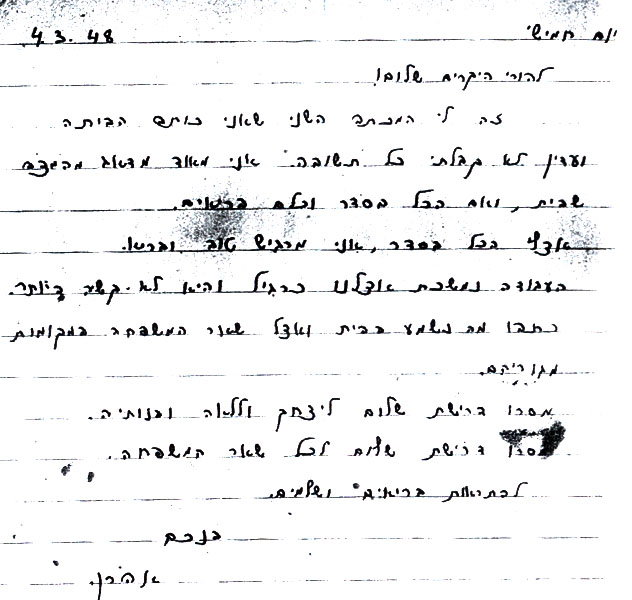 יום חמישי 4.3.48
להורי היקרים שלום!
זה לי המכתב השני שאני כותב הביתה
ועדין לא קבלתי כל תשובה. אני מאוד מדאג מהמצב
שבית, ואם הכל בסדר וכלם בריאים.
אצלי הכל בסדר, אני מרגיש טוב ובריא.
העבודה נמשכת אצלנו כרגיל והיא לא קשה ביותר.
כתבו מה נשמע בבית ואצל שאר המשפחה במקומות
מגוריהם.
מסרו דרישת שלום ליצחק וללאה ובנותיה.
מסרו דרישת שלום לכל שאר המשפחה.
להתראות בריאים ושלמים.
בנכם
אהרן.